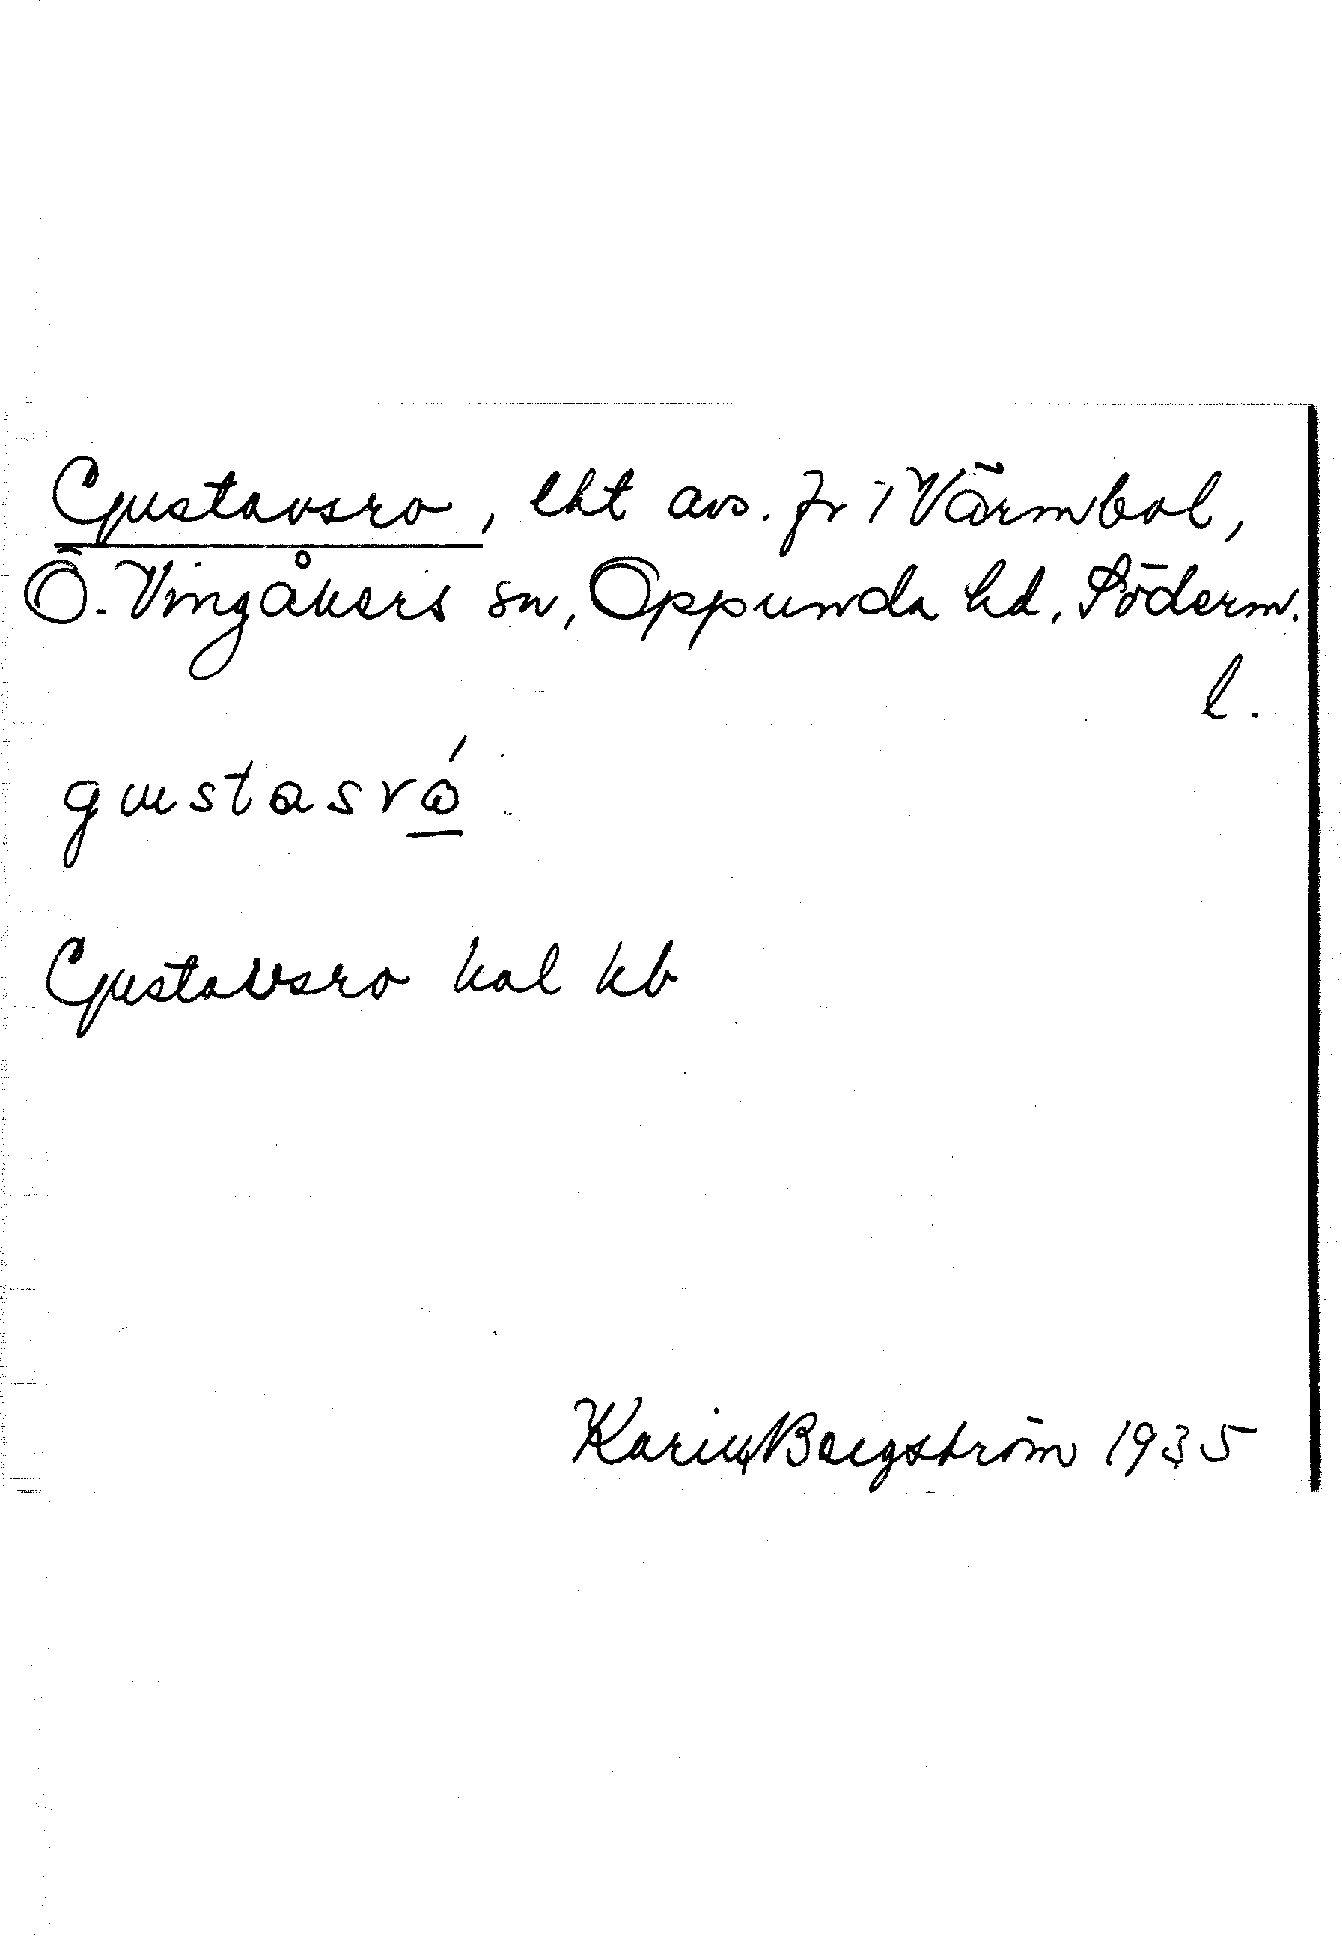 Gustavsro, lht avs. fr 1 Värmbol,
Ö. Vingåkers sn, Oppunda hd, Söderm.
l.
gustasró
Gustavsro kal kb
Karin Bergström 1935